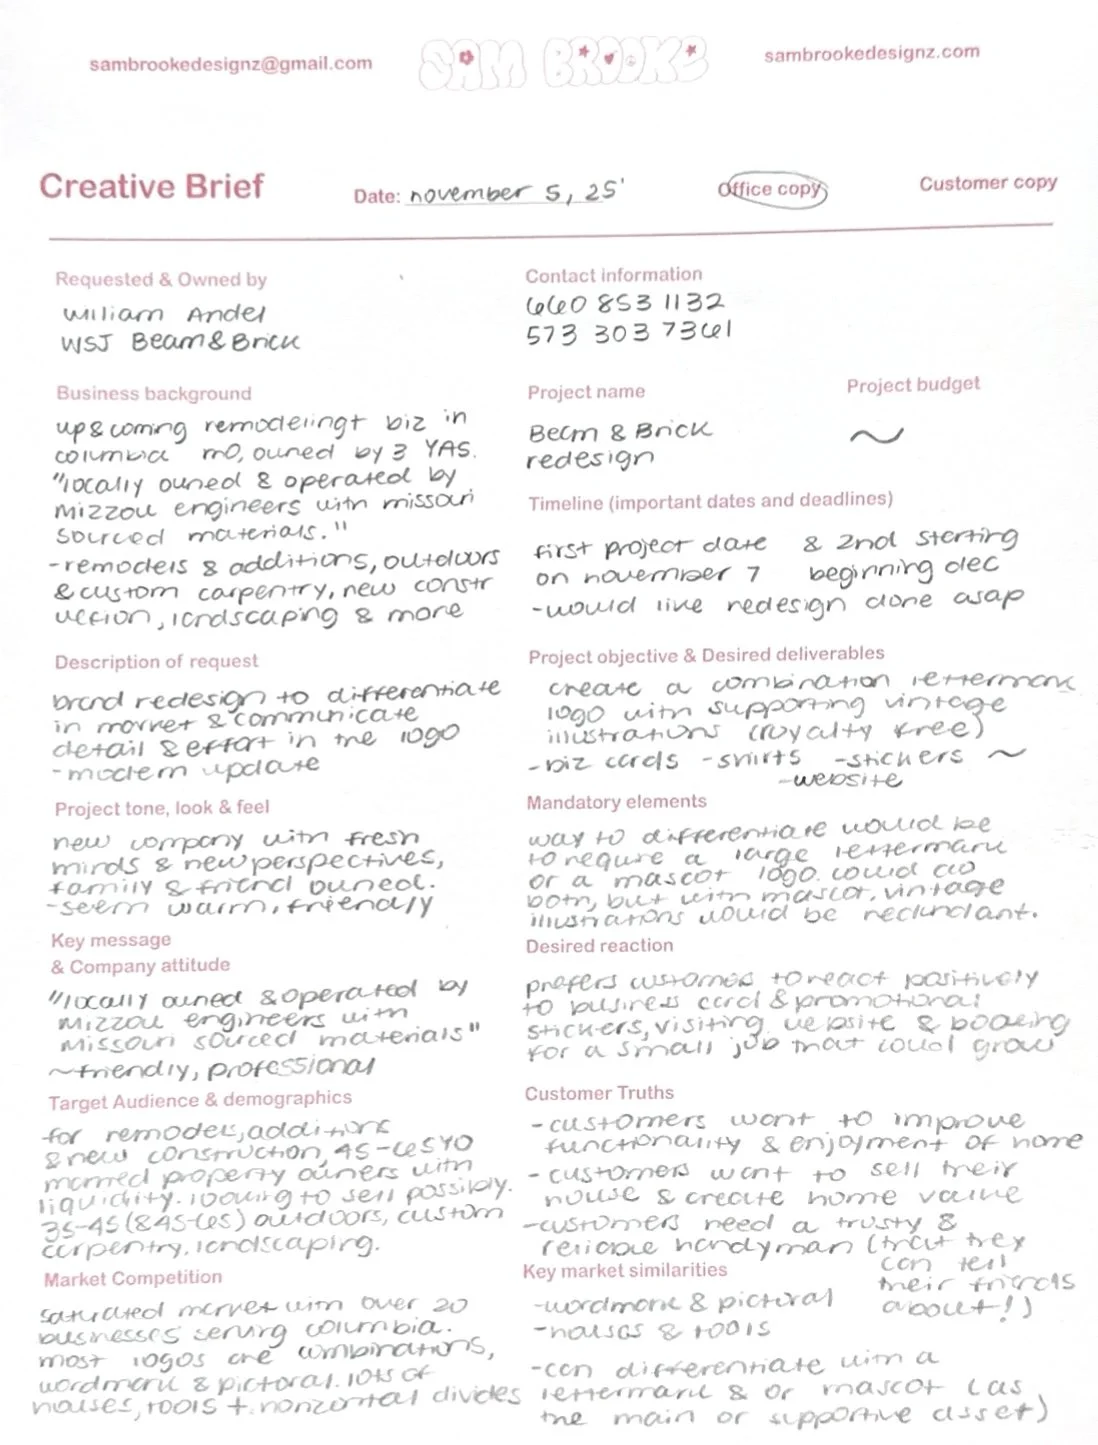 sambrookedesignz@gmail.com
SAM BROOKE
sambrookedesignz.com
Creative Brief
Date: november 5, 25'
Office copy
Customer copy
Requested & Owned by
William Andel
WSJ Beam & Brick
Contact information
660 853 1132
573 303 7361
Business background
up & coming remodeling + biz in
columbia mo, owned by 3 YAS.
"locally owned & operated by
Mizzou engineers with missouri
sourced materials."
-remodels & additions, outdoors
& custom carpentry, new constr
uction, landscaping & more
Project name
Beam & Brick
redesign
Project budget
~
Timeline (important dates and deadlines)
first project date & 2nd starting
on november 7 beginning dec
-would like redesign done asap
Description of request
brand redesign to differentiate
in market & communicate
detail & effort in the logo
-modern update
Project objective & Desired deliverables
create a combination lettermark
logo with supporting vintage
illustrations (royalty free)
-biz cards -shirts -stickers ~
-website
Project tone, look & feel
new company with fresh
minds & new perspectives,
family & friend owned.
-seem warm, friendly
Mandatory elements
way to differentiate would be
to require a large lettermark
or a mascot logo. could do
both, but with mascot, vintage
illustrations would be redundant.
Key message
& Company attitude
"locally owned & operated by
Mizzou engineers with
Missouri sourced materials"
~friendly, professional
Desired reaction
prefers customers to react positively
to business card & promotional
stickers, visiting website & booking
for a small job that could grow
Target Audience & demographics
for remodels, additions
& new construction, 45-65 YO
married property owners with
liquidity. looking to sell possibly.
35-45 (& 45-65) outdoors, custom
carpentry, landscaping.
Customer Truths
-customers want to improve
functionality & enjoyment of home
-customers want to sell their
house & create home value
-customers need a trusty &
reliable handyman (that they
can tell
their friends
about!)
Market Competition
saturated market with over 20
businesses serving columbia.
most logos are combinations,
wordmark & pictoral. lots of
houses, tools + horizontal divides
Key market similarities
-wordmark & pictoral
-houses & tools
-can differentiate with a
lettermark & or mascot (as
the main or supportive asset)